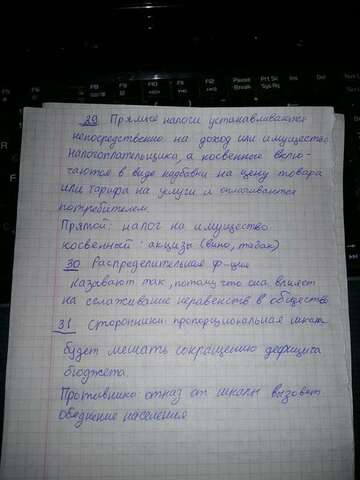 29 Прямые налоги устанавливаются
непосредственно на доход или имущество
налогоплательщика, а косвенные вклю-
чаются в виде надбавки на цену товара
или тарифа на услуги и оплачиваются
потребителем.
Прямой: налог на имущество
косвенный: акцизы (вино, табак)
30 Распределительная ф-ция
называют так, потому что она влияет
на сглаживание неравенств в обществе
31 Сторонники: пропорциональная
будет мешать сокращению дефицита
бюджета
Противники: отказ от шкалы вызовет
обеднение населения